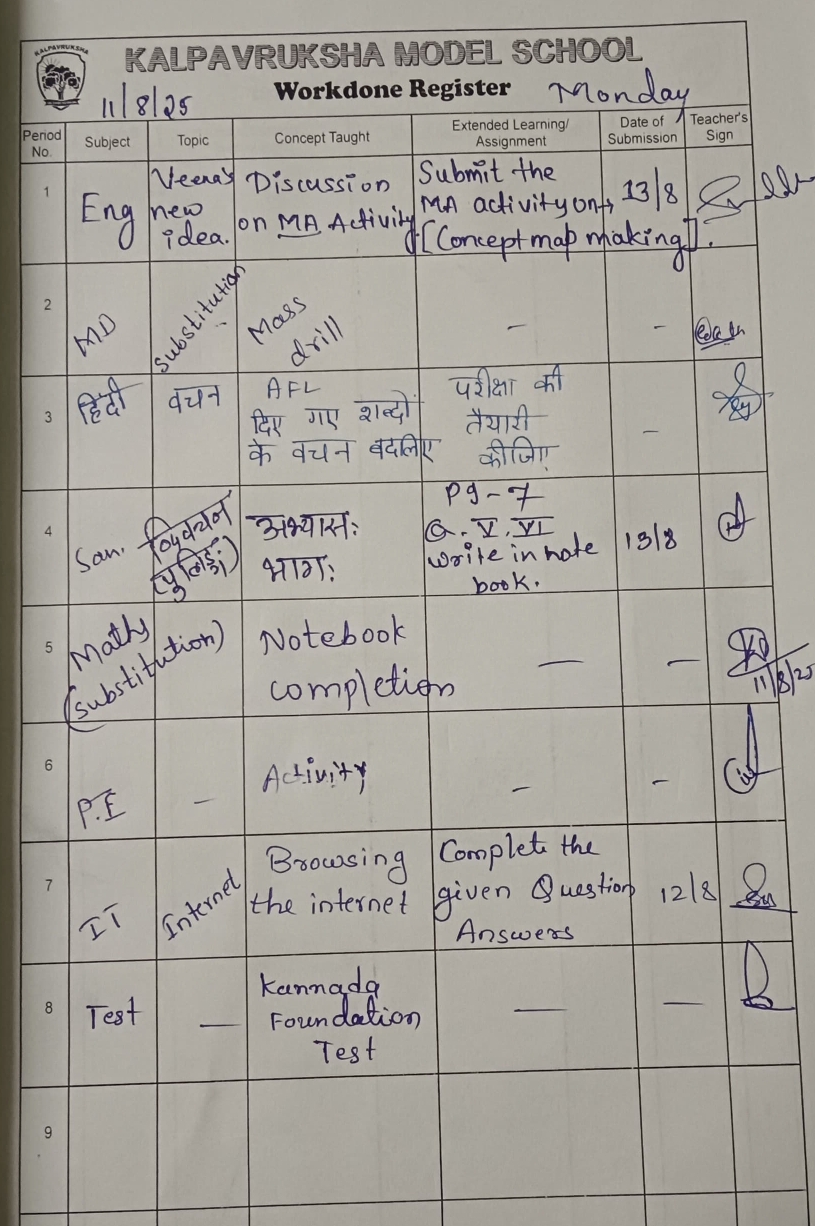 KALPAVRUKSHA
KALPAVRUKSHA MODEL SCHOOL
11/8/25 Workdone Register Monday
Period No. Subject Topic Concept Taught Extended Learning/ Assignment Date of Submission Teacher's Sign
1 Eng Veena's new idea. Discussion on MA Activity Submit the MA activity on → 13/8
[Concept map making].
2 MD Substitution Mass drill – –
3 हिंदी वचन AFL दिए गए शब्दों के वचन बदलिए परीक्षा की तैयारी कीजिए –
4 San. अभ्यासः भागः Pg-7 Q. V, VI write in note book. 13/8
5 Maths (substitution) Notebook completion — — 11/8/25
6 P.E – Activity – –
7 IT Internet Browsing the internet Complete the given Question Answers 12/8
8 Test — Kannada Foundation Test — —
9